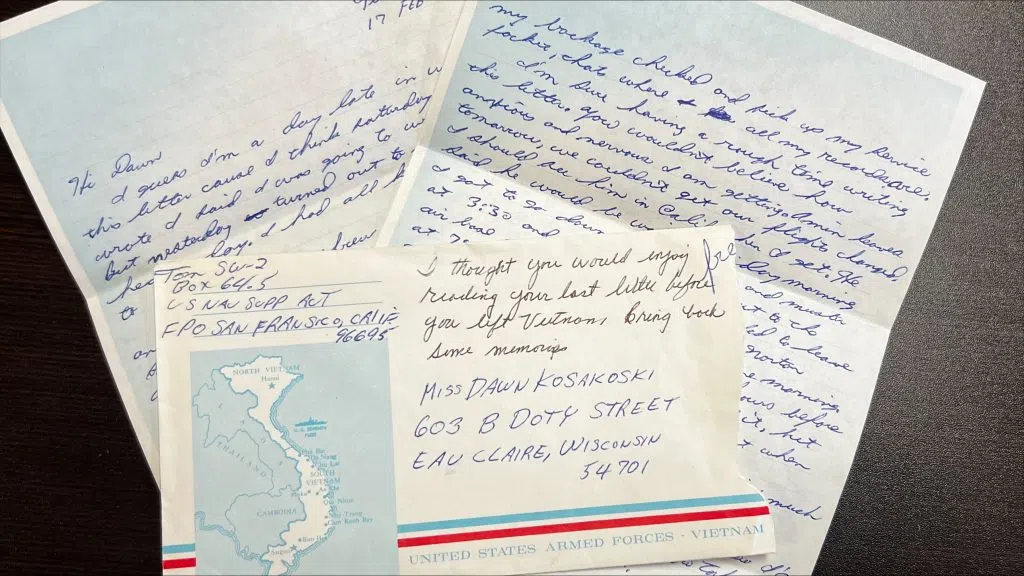 17 FEB
Hi Dawn
I guess I'm a day late in
this letter cause I think saturday
wrote I said I was going to
but yesterday turned out to
day. I had all
to
my baggage checked and pick up my service
packet, thats where all my records are.
I'm sure having a rough time writing
this letter, you wouldn't believe how
anxious and nervous I am getting. Amin leaves
tomorrow, we couldn't get our flights changed,
I should see him in Cali when I get. He
said he would be
day morning
I got to go down
and muster
at 3:30 and
to the
air base
to leave
at 7
norton
morning,
before
it, but
when
much
SW-2
Box 64.5
US NAV SUPP ACT
FPO SAN FRANSICO, CALIF
96695
free
I thought you would enjoy
reading your last letter before
you left Vietnam, Bring back
some memories
MISS DAWN KOSAKOSKI
603 B DOTY STREET
EAU CLAIRE, WISCONSIN
54701
NORTH VIETNAM
Hanoi
U.S. SEVENTH
FLEET
THAILAND
Da Nang
Chu Lai
SOUTH
VIETNAM
CAMBODIA
Nha Trang
Cam Ranh Bay
Saigon
UNITED STATES ARMED FORCES · VIETNAM